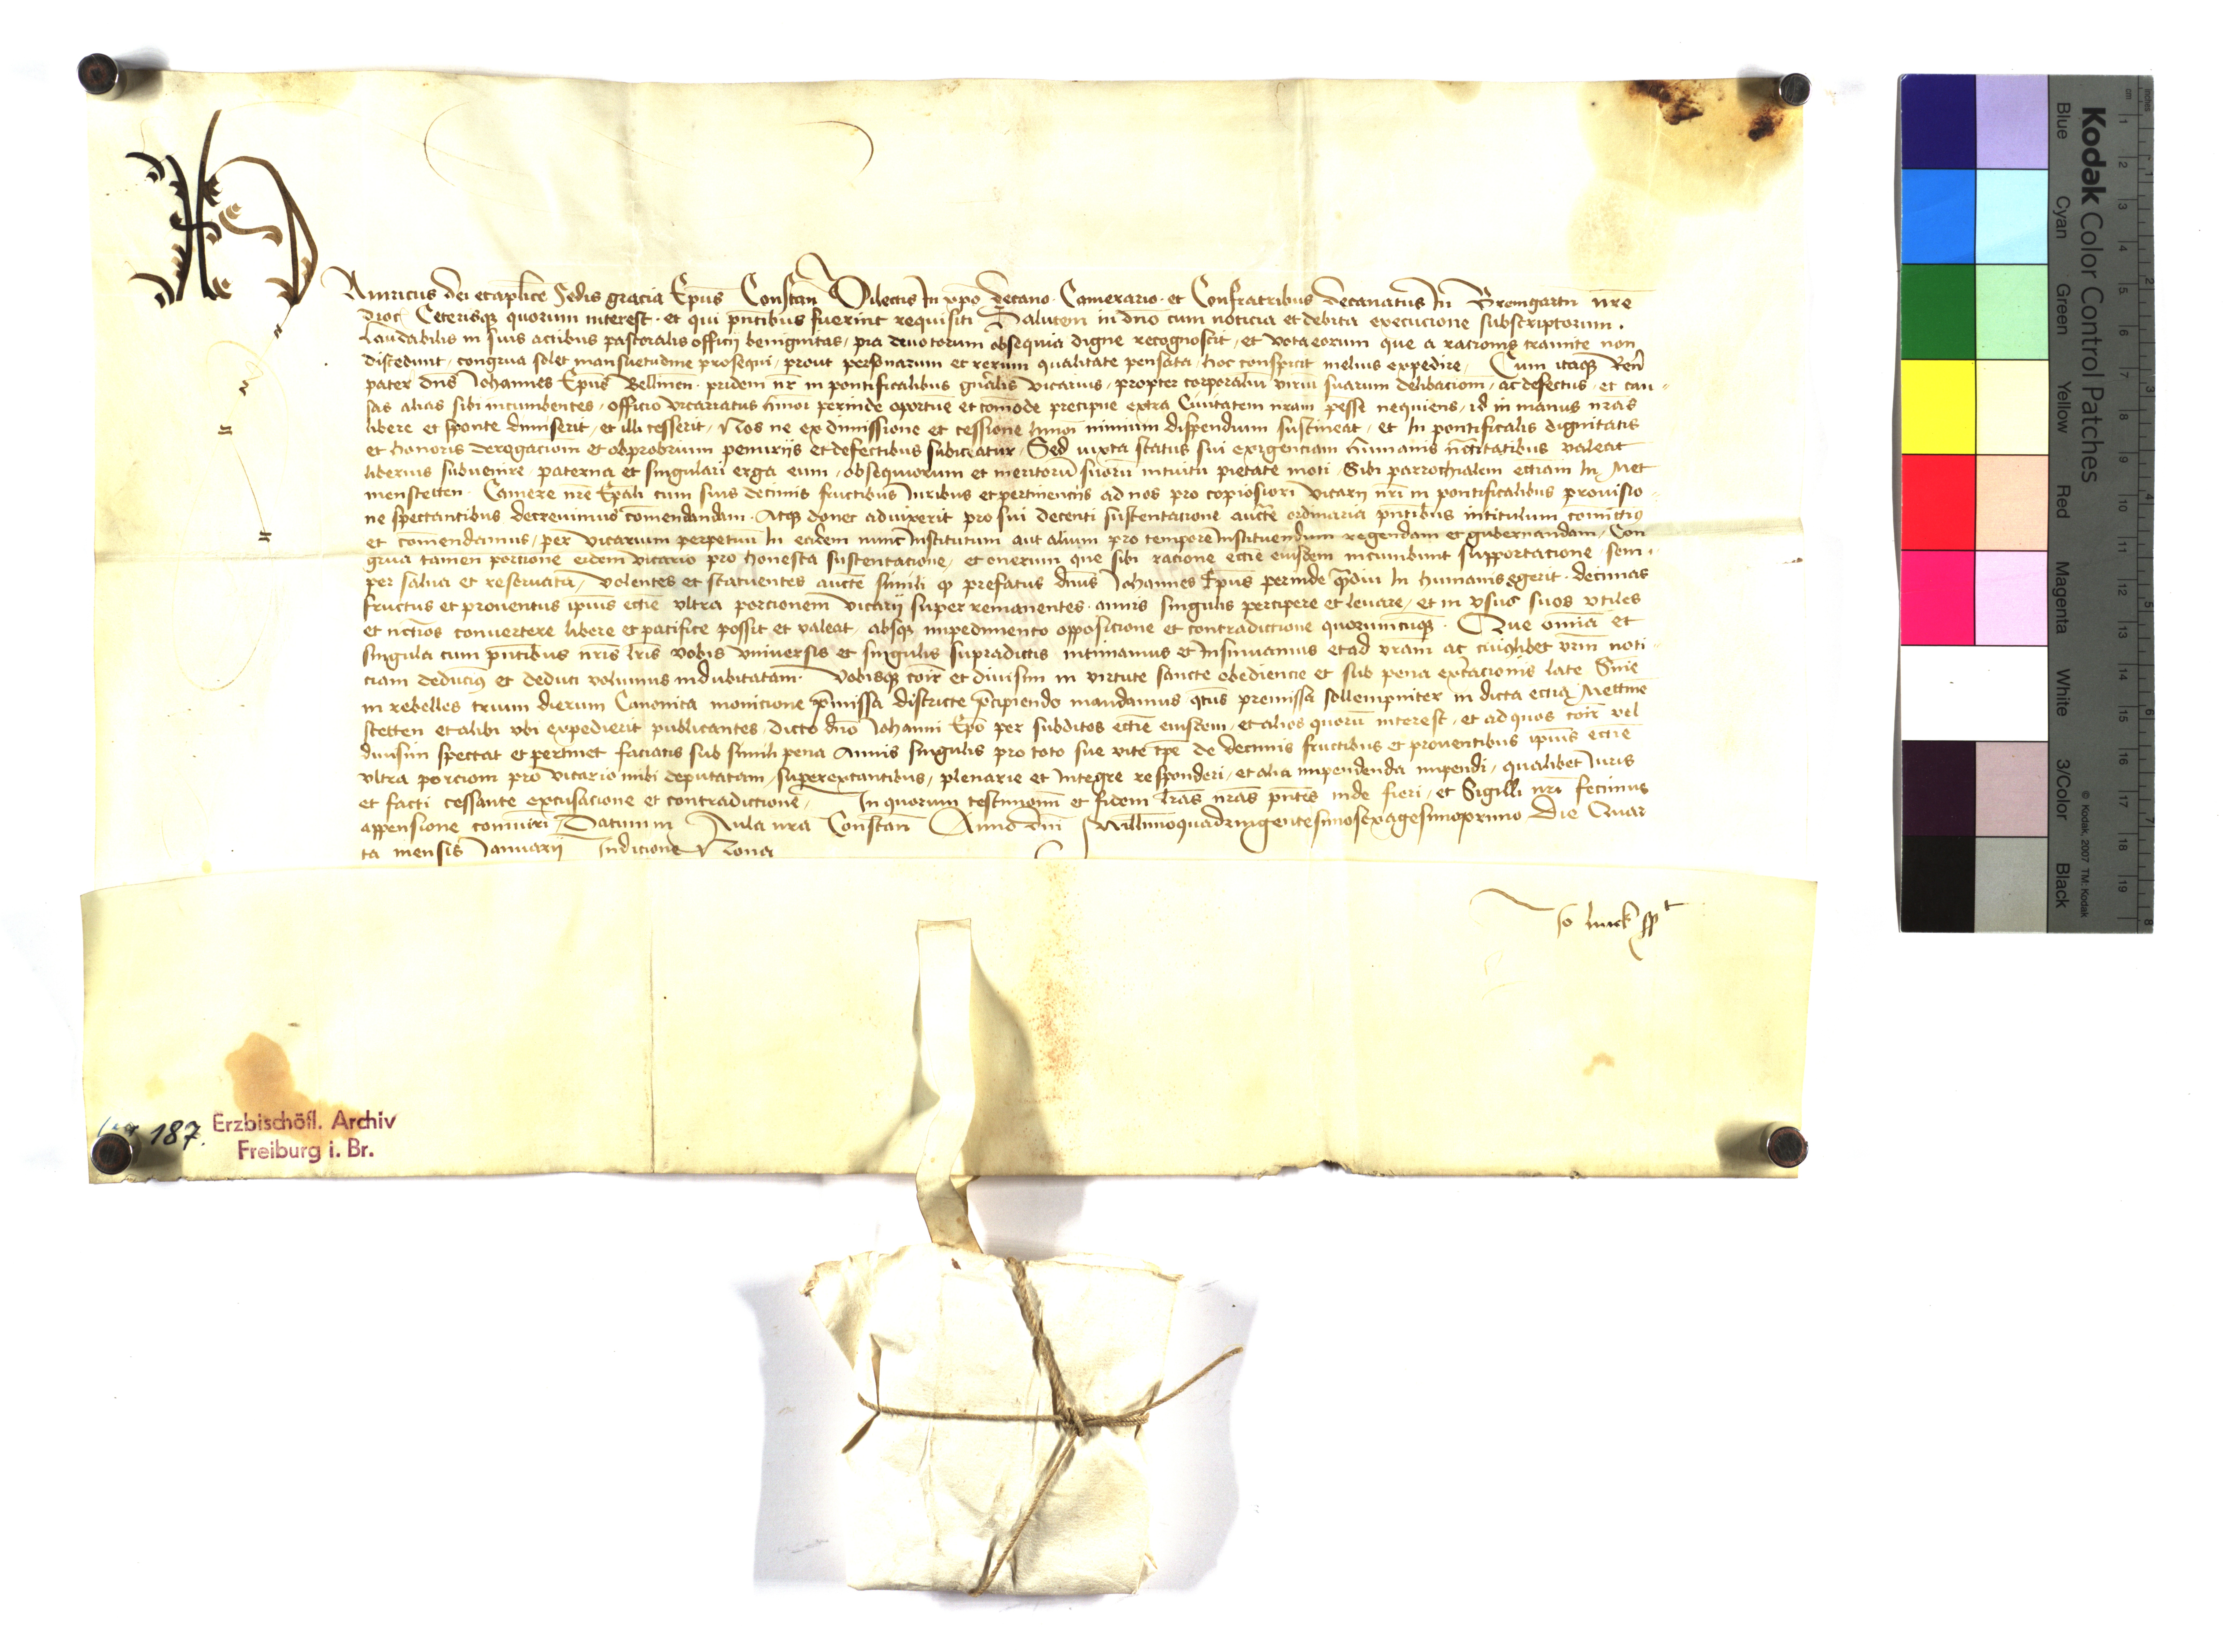 Hainricus dei et aplice Sedis gracia Epus Constan Dilectis In xpo Decano Camerario et Confratribus decanatus In Bremgartn nre
dioc Ceterisqz quorum interest et qui pntibus fuerint requisiti Salutem in dno cum noticia et debita execucione subscriptorum.
Laudabilis in suis actibus pastoralis officij benignitas, pia deuotorum obsequia digne recognoscit, et vota eorum que a racionis tramite non
discedunt, congrua solet mansuetudine prosequi, prout personarum et rerum qualitate pensata, hoc conspicit melius expedire, Cum itaqz Ren
pater dns Johannes Epus Bellinen pridem nr in pontificalibus gnalis vicarius, propter corporaliu viriu suarum debilaciom, ac defectus et cau-
sas alias sibi incumbentes, officio vicariatus hmoi perinde oportune et comode precipue extra Ciuitatem nram preesse nequiens, id in manus nras
libere et sponte dimiserit, et illi cesserit, Nos ne ex dimissione et cessione hmoi nimium dispendium sustineat, et In pontificalis dignitatis
et honoris derogaciom et obprobrium penurijs et defectibus subiceatur, Sed iuxta status sui exigenciam humanis nccitatibus valeat
liberius subuenire paterna et singulari erga eum, obsequiorum et meritoru suoru intuitu pietate moti, Sibi parrochialem ecciam In Met
menstetten Camere nre Epali cum suis decimis fructibus Iuribus et pertinencijs ad nos pro copiosiori vicarij nri in pontificalibus prouisio-
ne spectantibus decreuimus comendandam Atqz donec aduixerit pro sui decenti sustentacione aucte ordinaria pntibus intitulum comittim9
et comendamus, per vicarium perpetuu In eadem nunc Institutum aut alium pro tempore Instituendum regendam et gubernandam, Con
grua tamen porcione eidem vicario pro honesta sustentacione, et onerum que sibi racione eccie eiusdem incumbunt supportacione, sem-
per salua et reseruata, volentes et statuentes aucte simili qp prefatus dnus Johannes Epus perinde qmdiu In humanis egerit decimas
fructus et prouentus ipius eccie vltra porcionem vicarij super remanentes annis singulis percipere et leuare, et in vsus suos vtiles
et nccios conuertere libere et pacifice possit et valeat absqz impedimento opposicione et contradiccione quorumcuqz Que omia et
singula cum pntibus nris lris vobis vniuersis et singulis supradictis intimamus et Insinuamus et ad vram ac cuiuslibet vrm noti-
ciam deducim9 et deduci volumus indubitatam. Vobisqz coir et diuisim in virtute sancte obediencie et sub pena excoicacionis late Snie
in rebelles trium dierum Canonica monicione pmissa districte pcipiendo mandamus qtus premissa sollempniter in dicta eccia Mettme
stetten et alibi vbi expedierit publicantes, dicto dno Johanni Epo per subditos eccie eiusdem, et alios quoru interest, et ad quos coir vel
diuisim spectat et pertinet faciatis sub simili pena Annis singulis pro toto sue vite tpe de decimis fructibus et prouentibus ipius eccie
vltra porciom pro vicario inibi deputatam, superextantibus, plenarie et Integre responderi, et alia impendenda impendi, qualibet Iuris
et facti cessante excusacione et contradiccione, In quorum testimoniu et fidem lras nras pntes inde fieri, et Sigilli nri fecimus
appensione comuiri, Datum in Aula nra Constan Anno dni Millimoquadringentesimosexagesimoprimo Die Quar
ta mensis Januarij Indicione Nona
Jo
187. Erzbischöfl. Archiv
Freiburg i. Br.
Kodak Color Control Patches
Blue Cyan Green Yellow Red Magenta White 3/Color Black
© Kodak, 2007 TM: Kodak
cm 1 2 3 4 5 6 7 8 9 10 11 12 13 14 15 16 17 18 19
inches 1 2 3 4 5 6 7 8